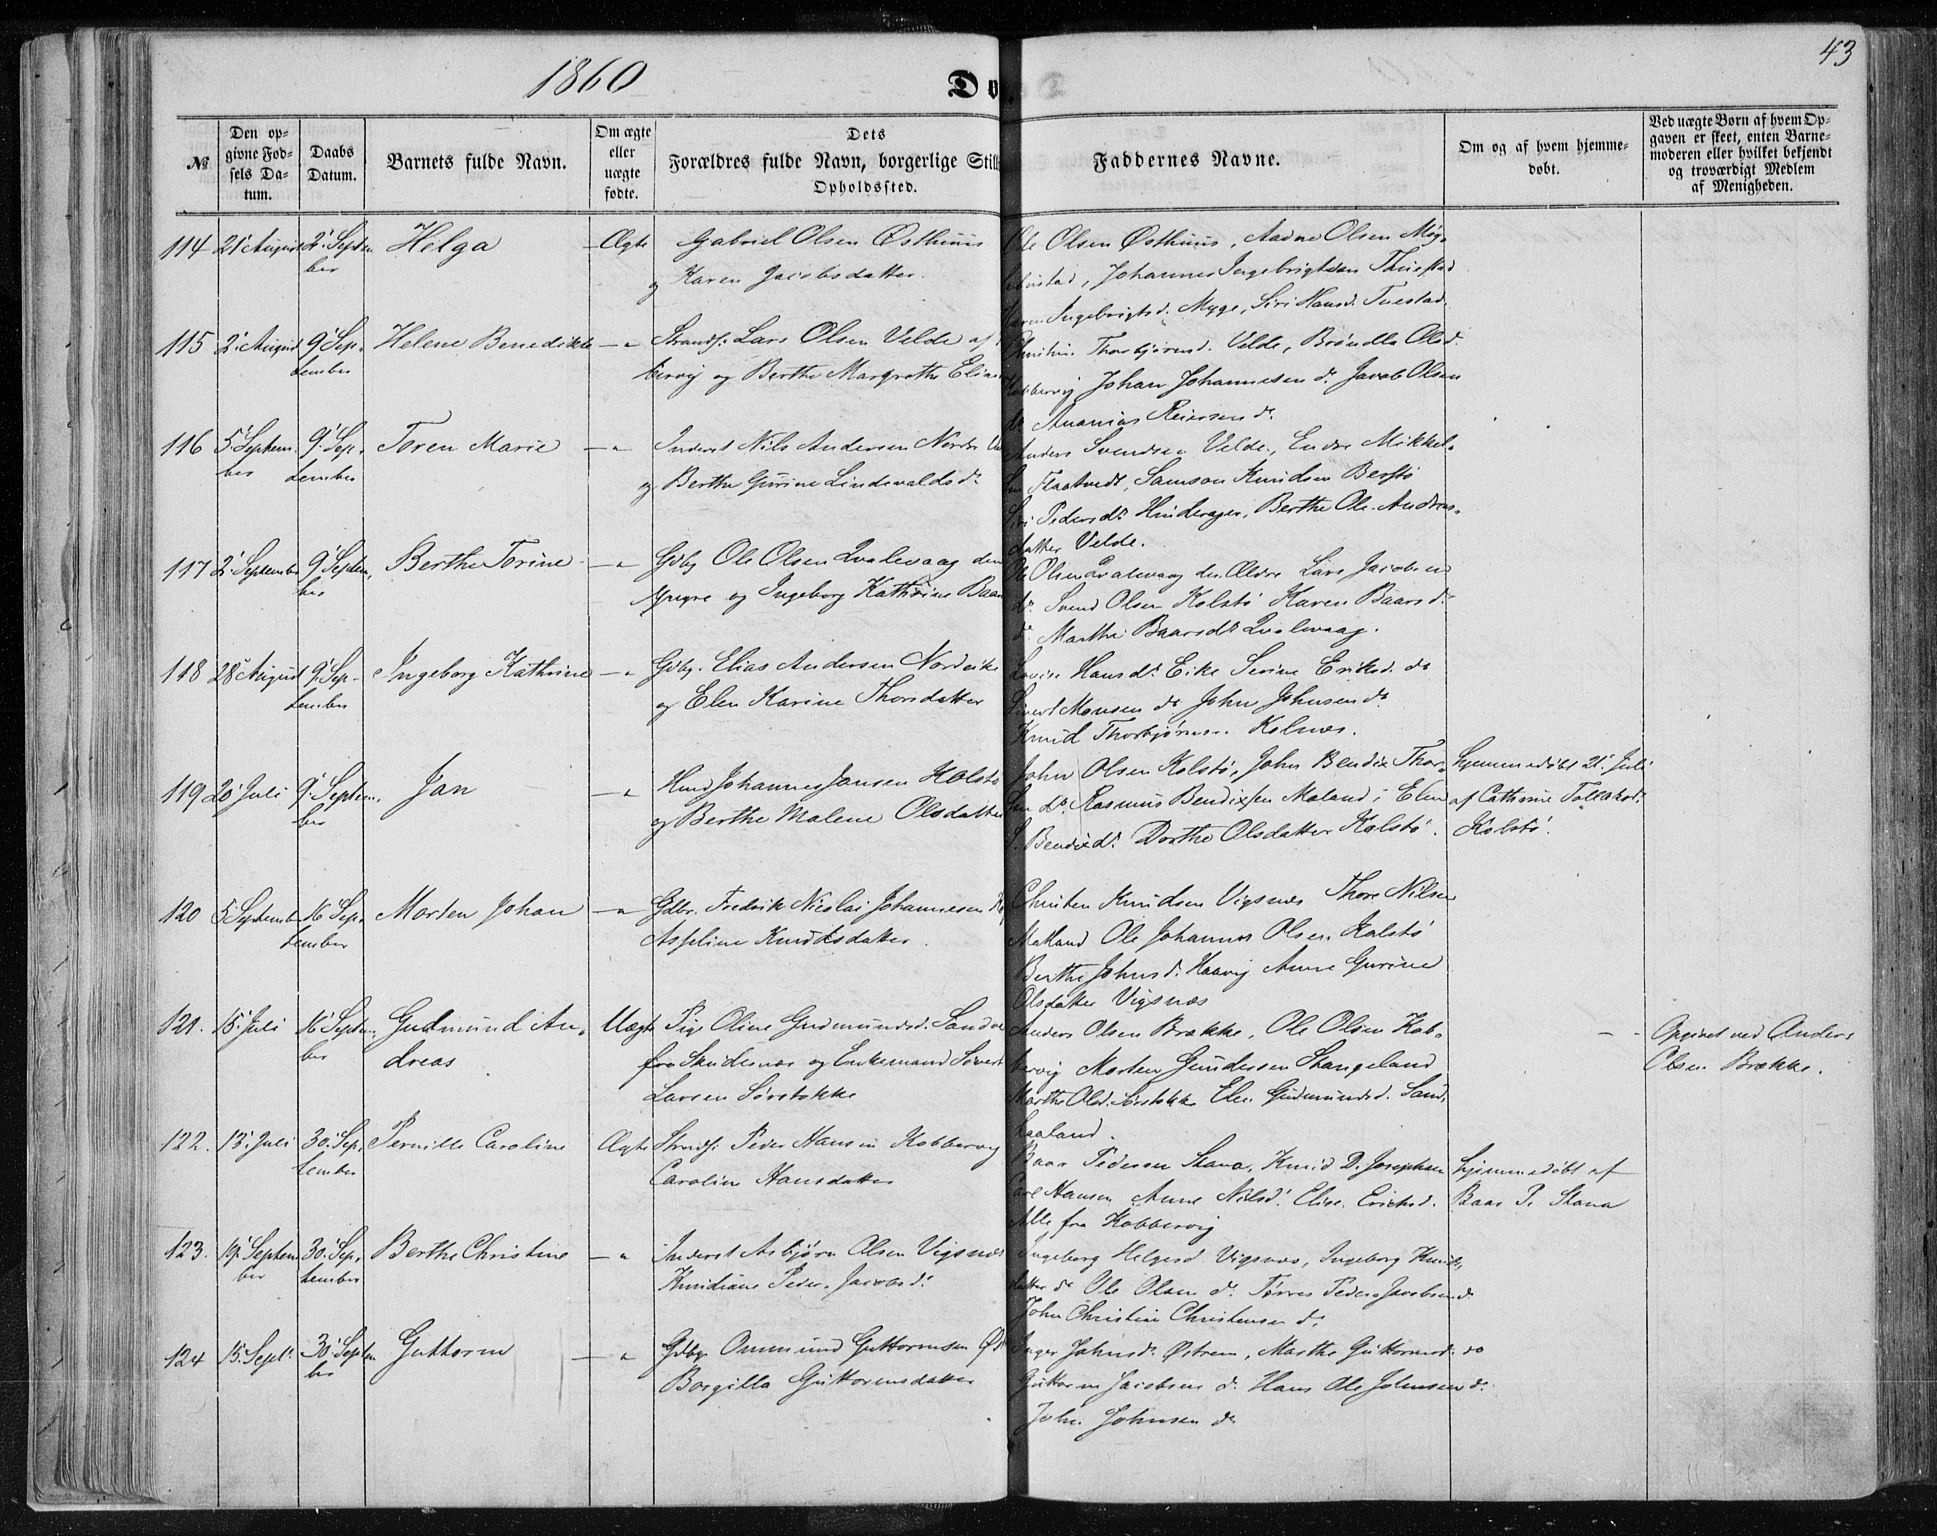 43
1860
Dø
№
Den op-
givne Fød-
sels Da-
tum.
Daabs
Datum.
Barnets fulde Navn.
Om ægte
eller
uægte
fødte.
Dets
Forældres fulde Navn, borgerlige Still
Opholdssted.
Faddernes Navne.
Om og af hvem hjemme-
døbt.
Ved uægte Børn af hvem Op-
gaven er skeet, enten Barne-
moderen eller hvilket bekjendt
og troværdigt Medlem
af Menigheden.
114 21' August 2' Septem
ber
Helga
Ægte
Gabriel Olsen Østhuus
og Karen Jacobsdatter.
Ole Olsen Østhuus, Aadne Olsen Myge
Johannes Ingebrigtsen Tuestad
Ingebrigtsd. Myge, Siri Hansd. Tuestad.
115 2' August 9' Sep-
tember
Helene Benedikte
— "
Strands. Lars Olsen Velde af
bervig og Berthe Margrethe Elia
Thorbjørnsd. Velde, Brønilla Olsd.
Kobbervig Johan Johannesen do. Jacob Olsen
do Ananias Reiersen do.
116 5' Septem-
ber
9' Sep-
tember
Toren Marie
— "
Inderst Nils Andersen Nordre
og Berthe Gurine Lindevaldsdr
Anders Svendsen Velde, Endre Mikkel-
sen Flaatvedt, Samson Knudsen
Siri Pedersdr. Hinderager, Berthe Ole Andreas-
datter Velde.
117 2' September 9' Septem-
ber
Berthe Torine
— "
Gdbr. Ole Olsen Qvalevaag den
yngre og Ingeborg Kathrine Baar
Ole Olsen Qvalevaag den Ældre Lars Jacobsen
do. Svend Olsen Kolstø Karen Baarsd.
do Marthe Baarsdr Qvalevaag.
118 28' August 9' Sep-
tember
Ingeborg Kathrine
— "
Gdbr. Elias Andersen Nordeike
og Elen Karine Thorsdatter
Lovise Hansdr. Eike Serine Eriksd. do
Sivert Monsen do John Johnsen do
Knud Thorbjørnsen Kolnes.
119 20' Juli 9' Septem-
ber
Jan
— "
Hmd Johannes Jansen Kolstø
og Berthe Malene Olsdatter
John Olsen Kolstø, John Bendix Thor-
sen do. Rasmus Bendixsen Maland, Elen
S. Bendixdr. Dorthe Olsdatter Kolstø.
hjemmedøbt 21' Juli
af Cathrine Tollaksdr.
Kolstø.
120 5' September 16' Sep-
tember
Morten Johan
— "
Gdbr. Fredrik Nicolai Johannesen
Asseline Knudsdatter.
Christen Knudsen Vigsnes Thore Nilsen
Matland Ole Johannes Olsen Kolstø
Berthe Johnsd. Haavig Anne Gurine
Olsdatter Vigsnæs
121. 15' Juli 16' Septem-
ber
Gudmund An-
dreas
Uægte
Pige Oline Gudmundsd. Sandve
fra Skudesnæs og Enkemand Sivert
Larsen Sørstokke
Anders Olsen Brække, Ole Olsen Kob-
bervig Morten Gundersen Stangeland
Marthe Olsd. Sørstokke Elen Gudmundsd. Sand.
— -
Opgivet ved Anders
Olsen Brække.
122. 13' Juli 30. Sep-
tember
Pernille Caroline
Ægte
Strands. Peder Hansen Kobbervig
Caroline Hansdatter
Baar Pedersen Stava, Knud D. Josephsen
Carl Hansen Anne Nilsd. Elise Eriksd.
Alle fra Kobbervig
hjemmedøbt af
Baar P. Stava
123. 19' Septem
ber
30. Sep-
tember
Berthe Christine
— "
Inderst Asbjørn Olsen Vigsnæs
Knudiane Peder. Jacobsd.
Ingeborg Helgesd. Vigsnæs, Ingeborg Knuds-
datter do Ole Olsen do. Tørres Peder Jacobsen do
John Christian Christensen do.
124 15. Sept. 30' Septem
ber
Guttorm
— "
Gdbr Ommund Guttormsen Øst
Borgilla Guttormsdatter
Inger Johnsdr. Østrem, Marthe Guttormsd. do
Guttorm Jacobsen do. Hans Ole Johnsen do.
John Johnsen do